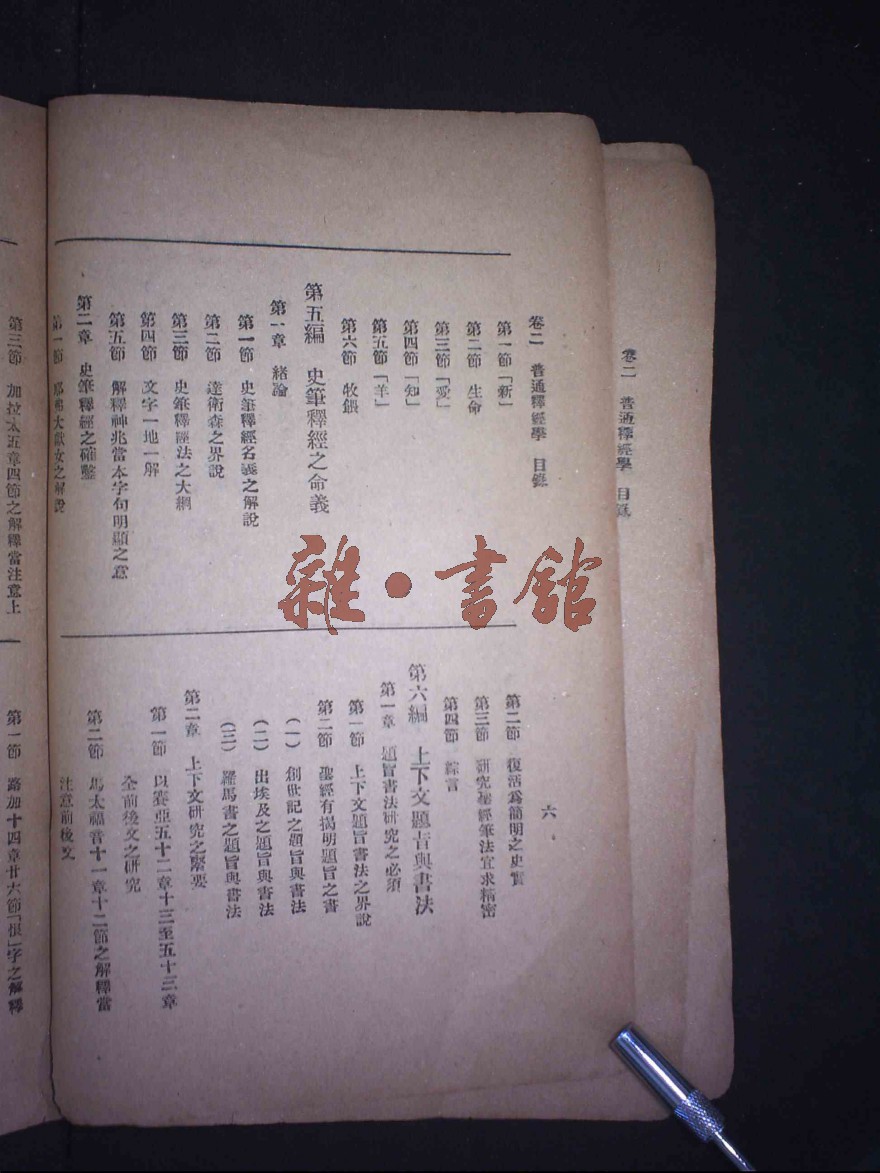 卷二 普通釋經學 目錄
卷二 普通釋經學 目錄
第一節「新」
第二節 生命
第三節「愛」
第四節「知」
第五節「羊」
第六節 牧餵
第五編 史筆釋經之命義
第一章 緒論
第一節 史筆釋經名義之解說
第二節 達衛森之界說
第三節 史筆釋經法之大綱
第四節 文字一地一解
第五節 解釋神兆當本字句明顯之意
第二章 史筆釋經之確鑿
第一節 耶弗大獻女之解說
六
第二節 復活爲簡明之史實
第三節 研究聖經筆法宜求精密
第四節 綜言
第六編 上下文題旨與書法
第一章 題旨書法研究之必須
第一節 上下文題旨書法之界說
第二節 聖經有揭明題旨之書
(一) 創世記之題旨與書法
(二) 出埃及之題旨與書法
(三) 羅馬書之題旨與書法
第二章 上下文研究之緊要
第一節 以賽亞五十二章十三至五十三章
全前後文之研究
第二節 馬太福音十一章十二節之解釋當
注意前後文
第三節 加拉太五章四節之解釋當注意上
第一節 路加十四章廿六節「恨」字之解釋
雜·書館